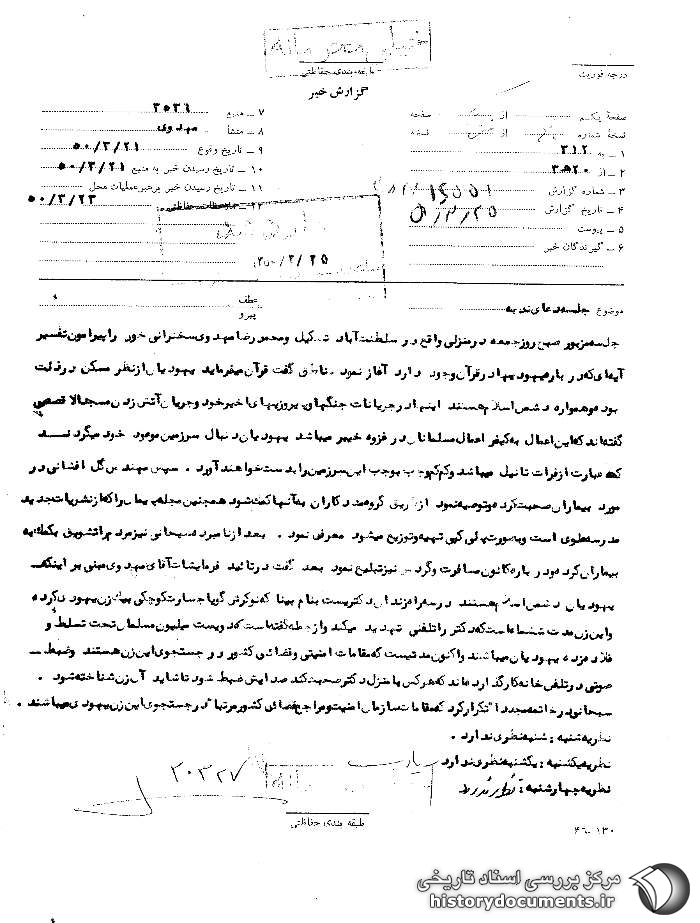 خیلی محرمانه
طبقه بندی حفاظتی
گزارش خبر
درجه فوریت
صفحه یکم از یک صفحه
نسخه شماره از نسخه
۱ ـ به ۳۱۲
۲ ـ از ۲۰ ه‍ ۳
۳ ـ شماره گزارش
۴ ـ تاریخ گزارش
۵ ـ پیوست
۶ ـ گیرندگان خبر
۷ ـ منبع
۸ ـ منشأ مهدوی
۹ ـ تاریخ وقوع ۵۰/۳/۲۱
۱۰ ـ تاریخ رسیدن خبر به منبع ۵۰/۳/۲۱
۱۱ ـ تاریخ رسیدن خبر برهبر عملیات محل ۵۰/۳/۲۳
۱۲ ـ ملاحظات حفاظتی
موضوع جلسه دعای ندبه
عطف
پیرو
جلسه مزبور صبح روز جمعه در منزلی واقع در سلطنت آباد تشکیل و محمد رضا مهدوی سخنرانی خود را پیرامون تفسیر
آیه‌ای که درباره یهودیها در قرآن وجود دارد آغاز نمود. ناطق گفت قرآن میفرماید یهودیان از نظر مسکن در ذلت
بوده و همواره دشمن اسلام هستند اینها در جریانات جنگها و پیروزیهای اخیر خود و جریان آتش زدن مسجد الاقصی
گفته‌اند که این اعمال به کیفر اعمال مسلمانان در غزوه خیبر میباشد یهودیان دنبال سرزمین موعود خود میگردند
که عبارت از فرات تا نیل میباشد و کم کم وجب بوجب این سرزمین را بدست خواهند آورد. سپس مهندس گل افشانی در
مورد بیماران صحبت کرده و توصیه نمود از طریق گروه مددکاران به آنها کمک شود همچنین مجله پیمان را که از نشریات جدید
مدرسه علوی است و بصورت پلی کپی تهیه و توزیع میشود معرفی نمود. بعد از نامبرده سبحانی نیز مردم را تشویق بکمک به
بیماران کرد و درباره کانون مسافرت و گردش نیز تبلیغ نمود بعد گفت در تائید فرمایشات آقای مهدوی مبنی بر اینکه
یهودیان دشمن اسلام هستند در سه راه ژندان دکتریست بنام بینا که نوکرش گویا جسارت کوچکی به یک زن یهودی کرده
و این زن مدت شش ماه است که دکتر را تلفنی تهدید میکند و از جمله گفته است که دویست میلیون مسلمان تحت تسلط و
قلاده زده یهودیان میباشند و اکنون مدتیست که مقامات امنیتی و قضائی کشور در جستجوی این زن هستند و ضبط
صوتی در تلفن خانه کار گذارده‌اند که هر کس با منزل دکتر صحبت کند صدایش ضبط شود تا شاید آن زن شناخته شود.
سبحانی در خاتمه مجددا تکرار کرد که مقامات سازمان امنیت و مراجع قضائی کشور مرتبا در جستجوی این زن یهودی میباشند.
نظریه شنبه: شنبه نظری ندارد.
نظریه یکشنبه: یکشنبه نظری ندارد
نظریه چهارشنبه: نظری ندارد
طبقه بندی حفاظتی
۴۶-۱۳۰
مرکز بررسی اسناد تاریخی
historydocuments.ir